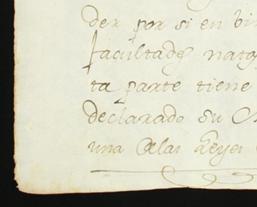 der por si en bi
facultade nato
ta parte tiene
declarado su
una Reyes